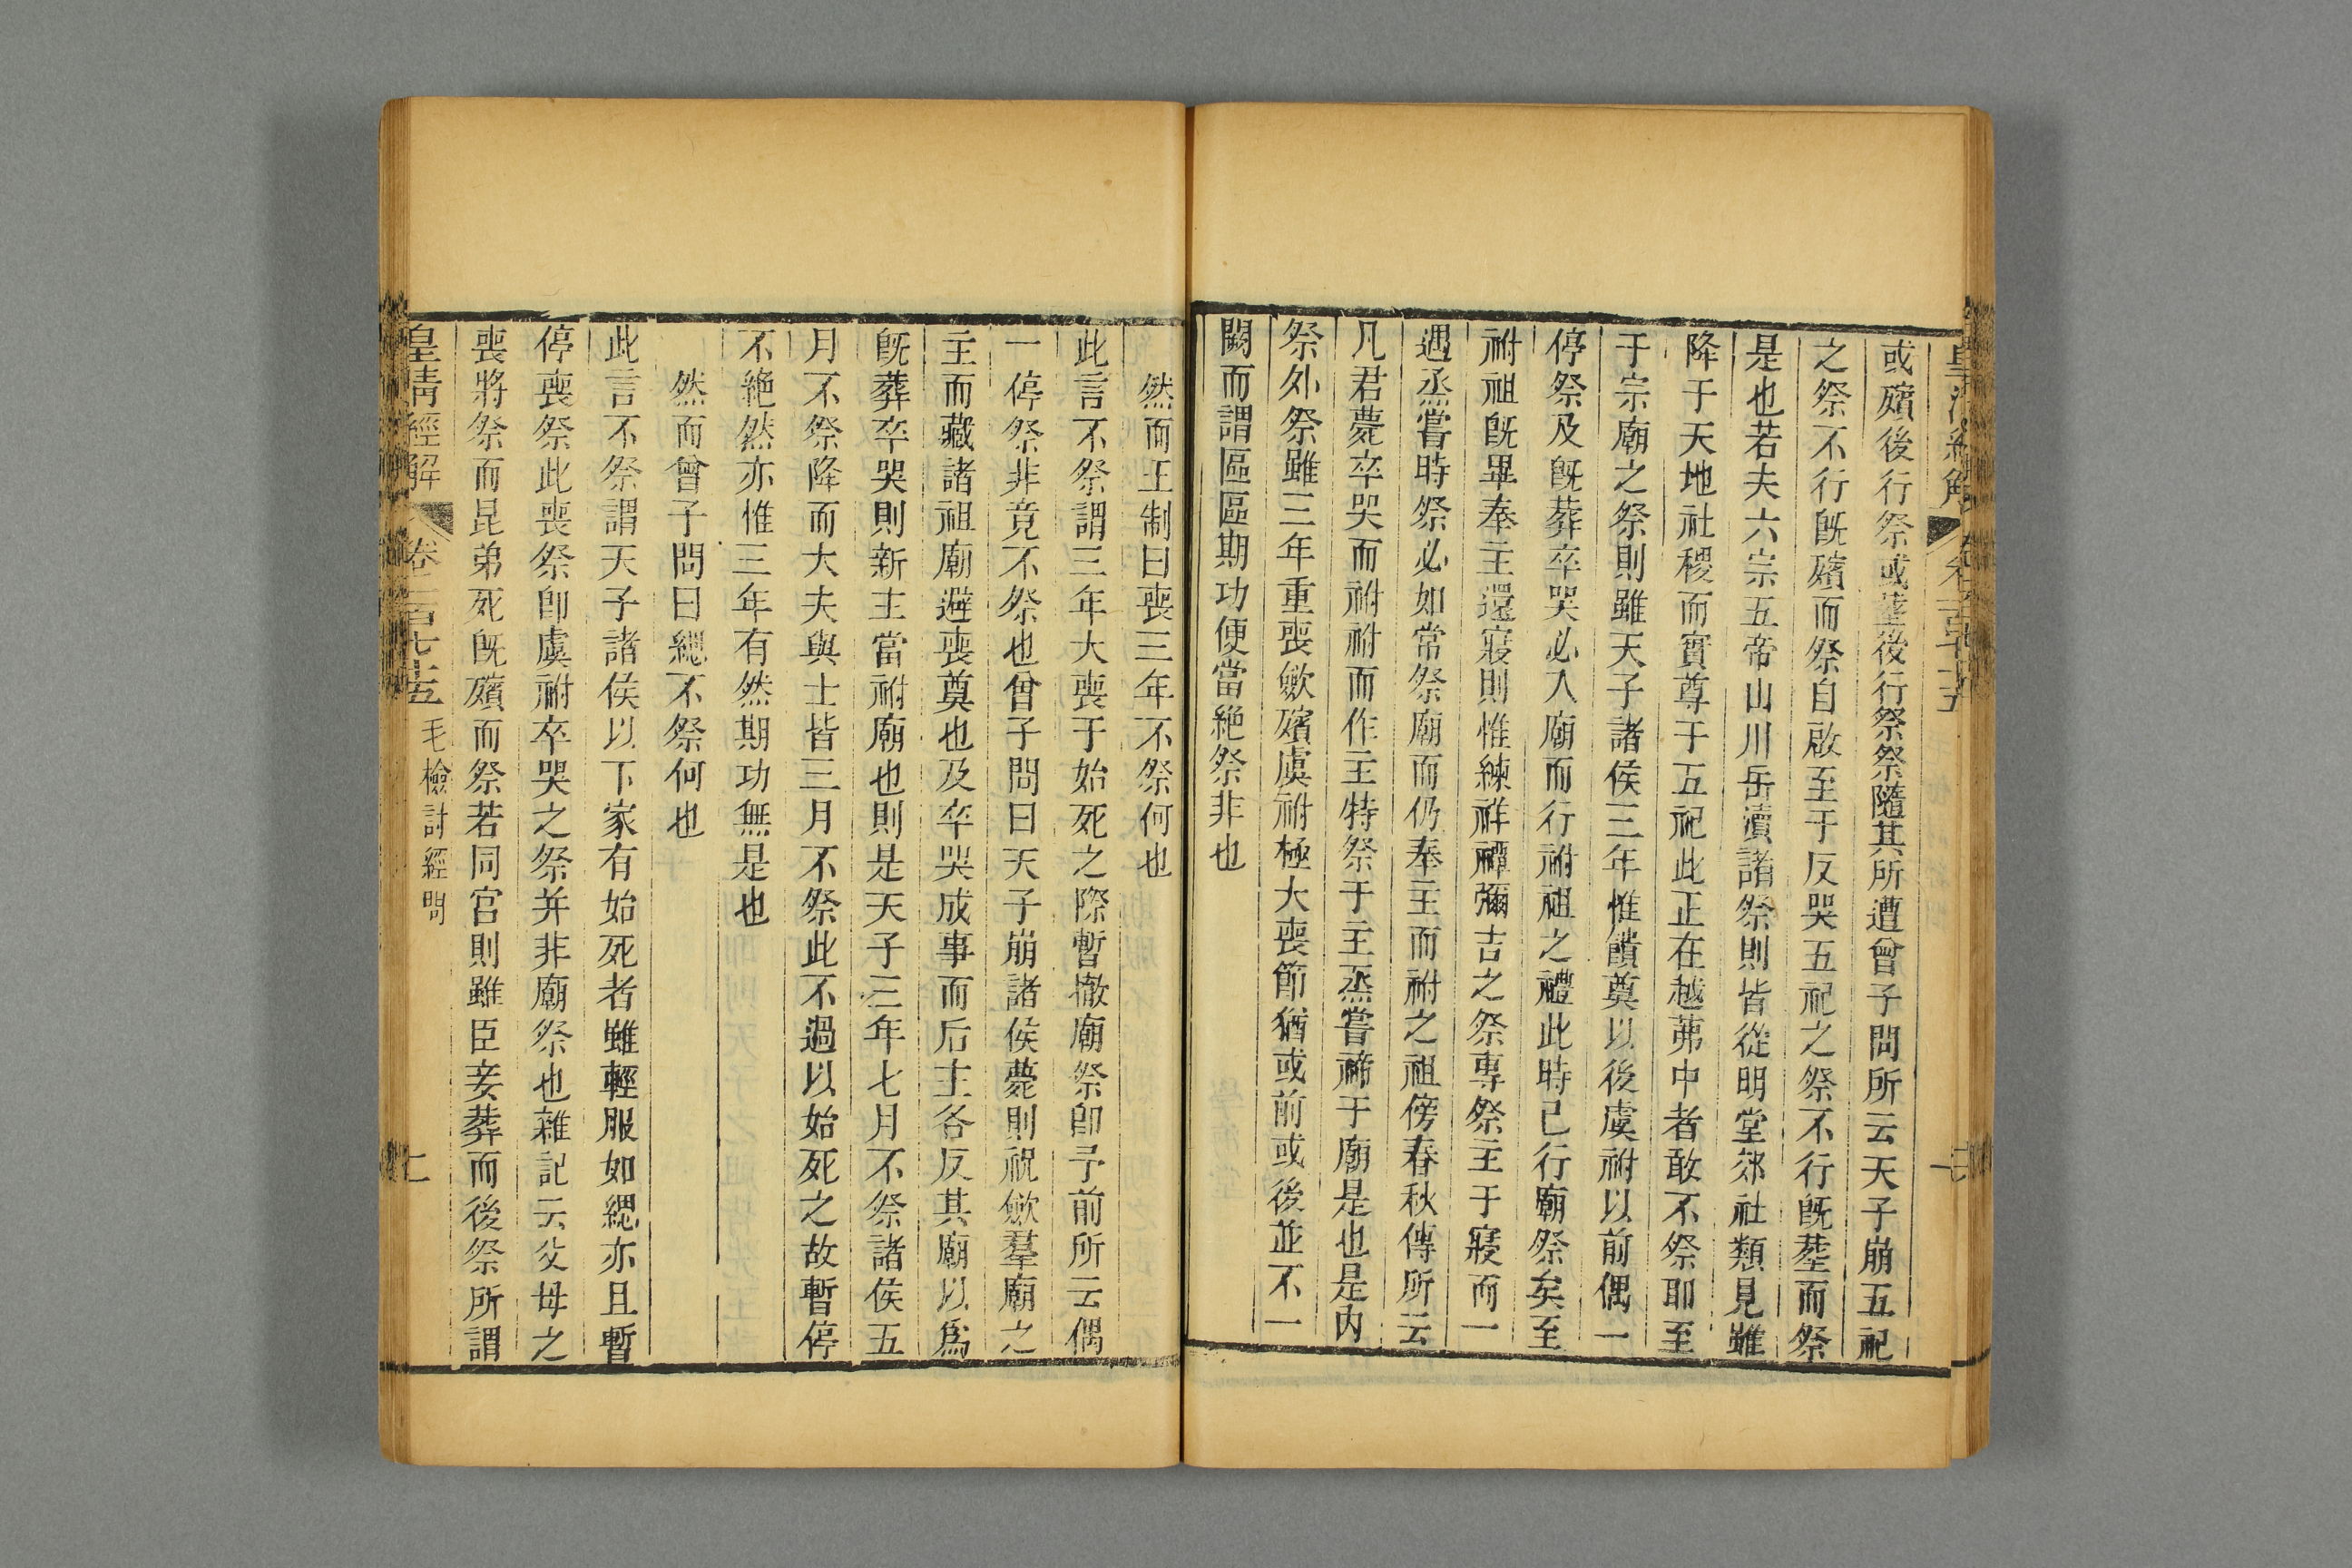 或殯後行祭或塟後行祭祭隨其所遭曾子問所云天子崩五祀
之祭不行既殯而祭自啟至于反哭五祀之祭不行既塟而祭
是也若夫六宗五帝山川岳瀆諸祭則皆從明堂郊社類見雖
降于天地社稷而實尊于五祀此正在越茀中者敢不祭耶至
于宗廟之祭則雖天子諸侯三年惟饋奠以後虞祔以前偶一
停祭及既葬卒哭必入廟而行祔祖之禮此時已行廟祭矣至
祔祖既畢奉主還寢則惟練祥禫彌吉之祭專祭主于寢而一
遇烝嘗時祭必如常祭廟而仍奉主而祔之祖傍春秋傳所云
凡君薨卒哭而祔祔而作主特祭于主烝嘗禘于廟是也是内
祭外祭雖三年重喪歛殯虞祔極大喪節猶或前或後並不一
闕而謂區區期功便當絶祭非也
然而王制曰喪三年不祭何也
此言不祭謂三年大喪于始死之際暫撤廟祭卽予前所云偶
一停祭非竟不祭也曾子問曰天子崩諸侯薨則祝歛羣廟之
主而藏諸祖廟避喪奠也及卒哭成事而后主各反其廟以爲
既葬卒哭則新主當祔廟也則是天子三年七月不祭諸侯五
月不祭降而大夫與士皆三月不祭此不過以始死之故暫停
不絶然亦惟三年有然期功無是也
然而曾子問曰緦不祭何也
此言不祭謂天子諸侯以下家有始死者雖輕服如緦亦且暫
停喪祭此喪祭卽虞祔卒哭之祭并非廟祭也雜記云父母之
喪將祭而昆弟死既殯而祭若同宫則雖臣妾葬而後祭所謂
皇清經解
卷一百七十五
毛檢討經問
七